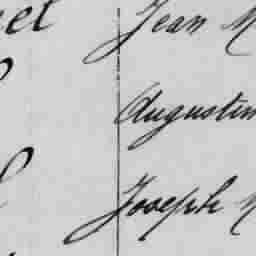 Jean M
Augustin
Joseph M